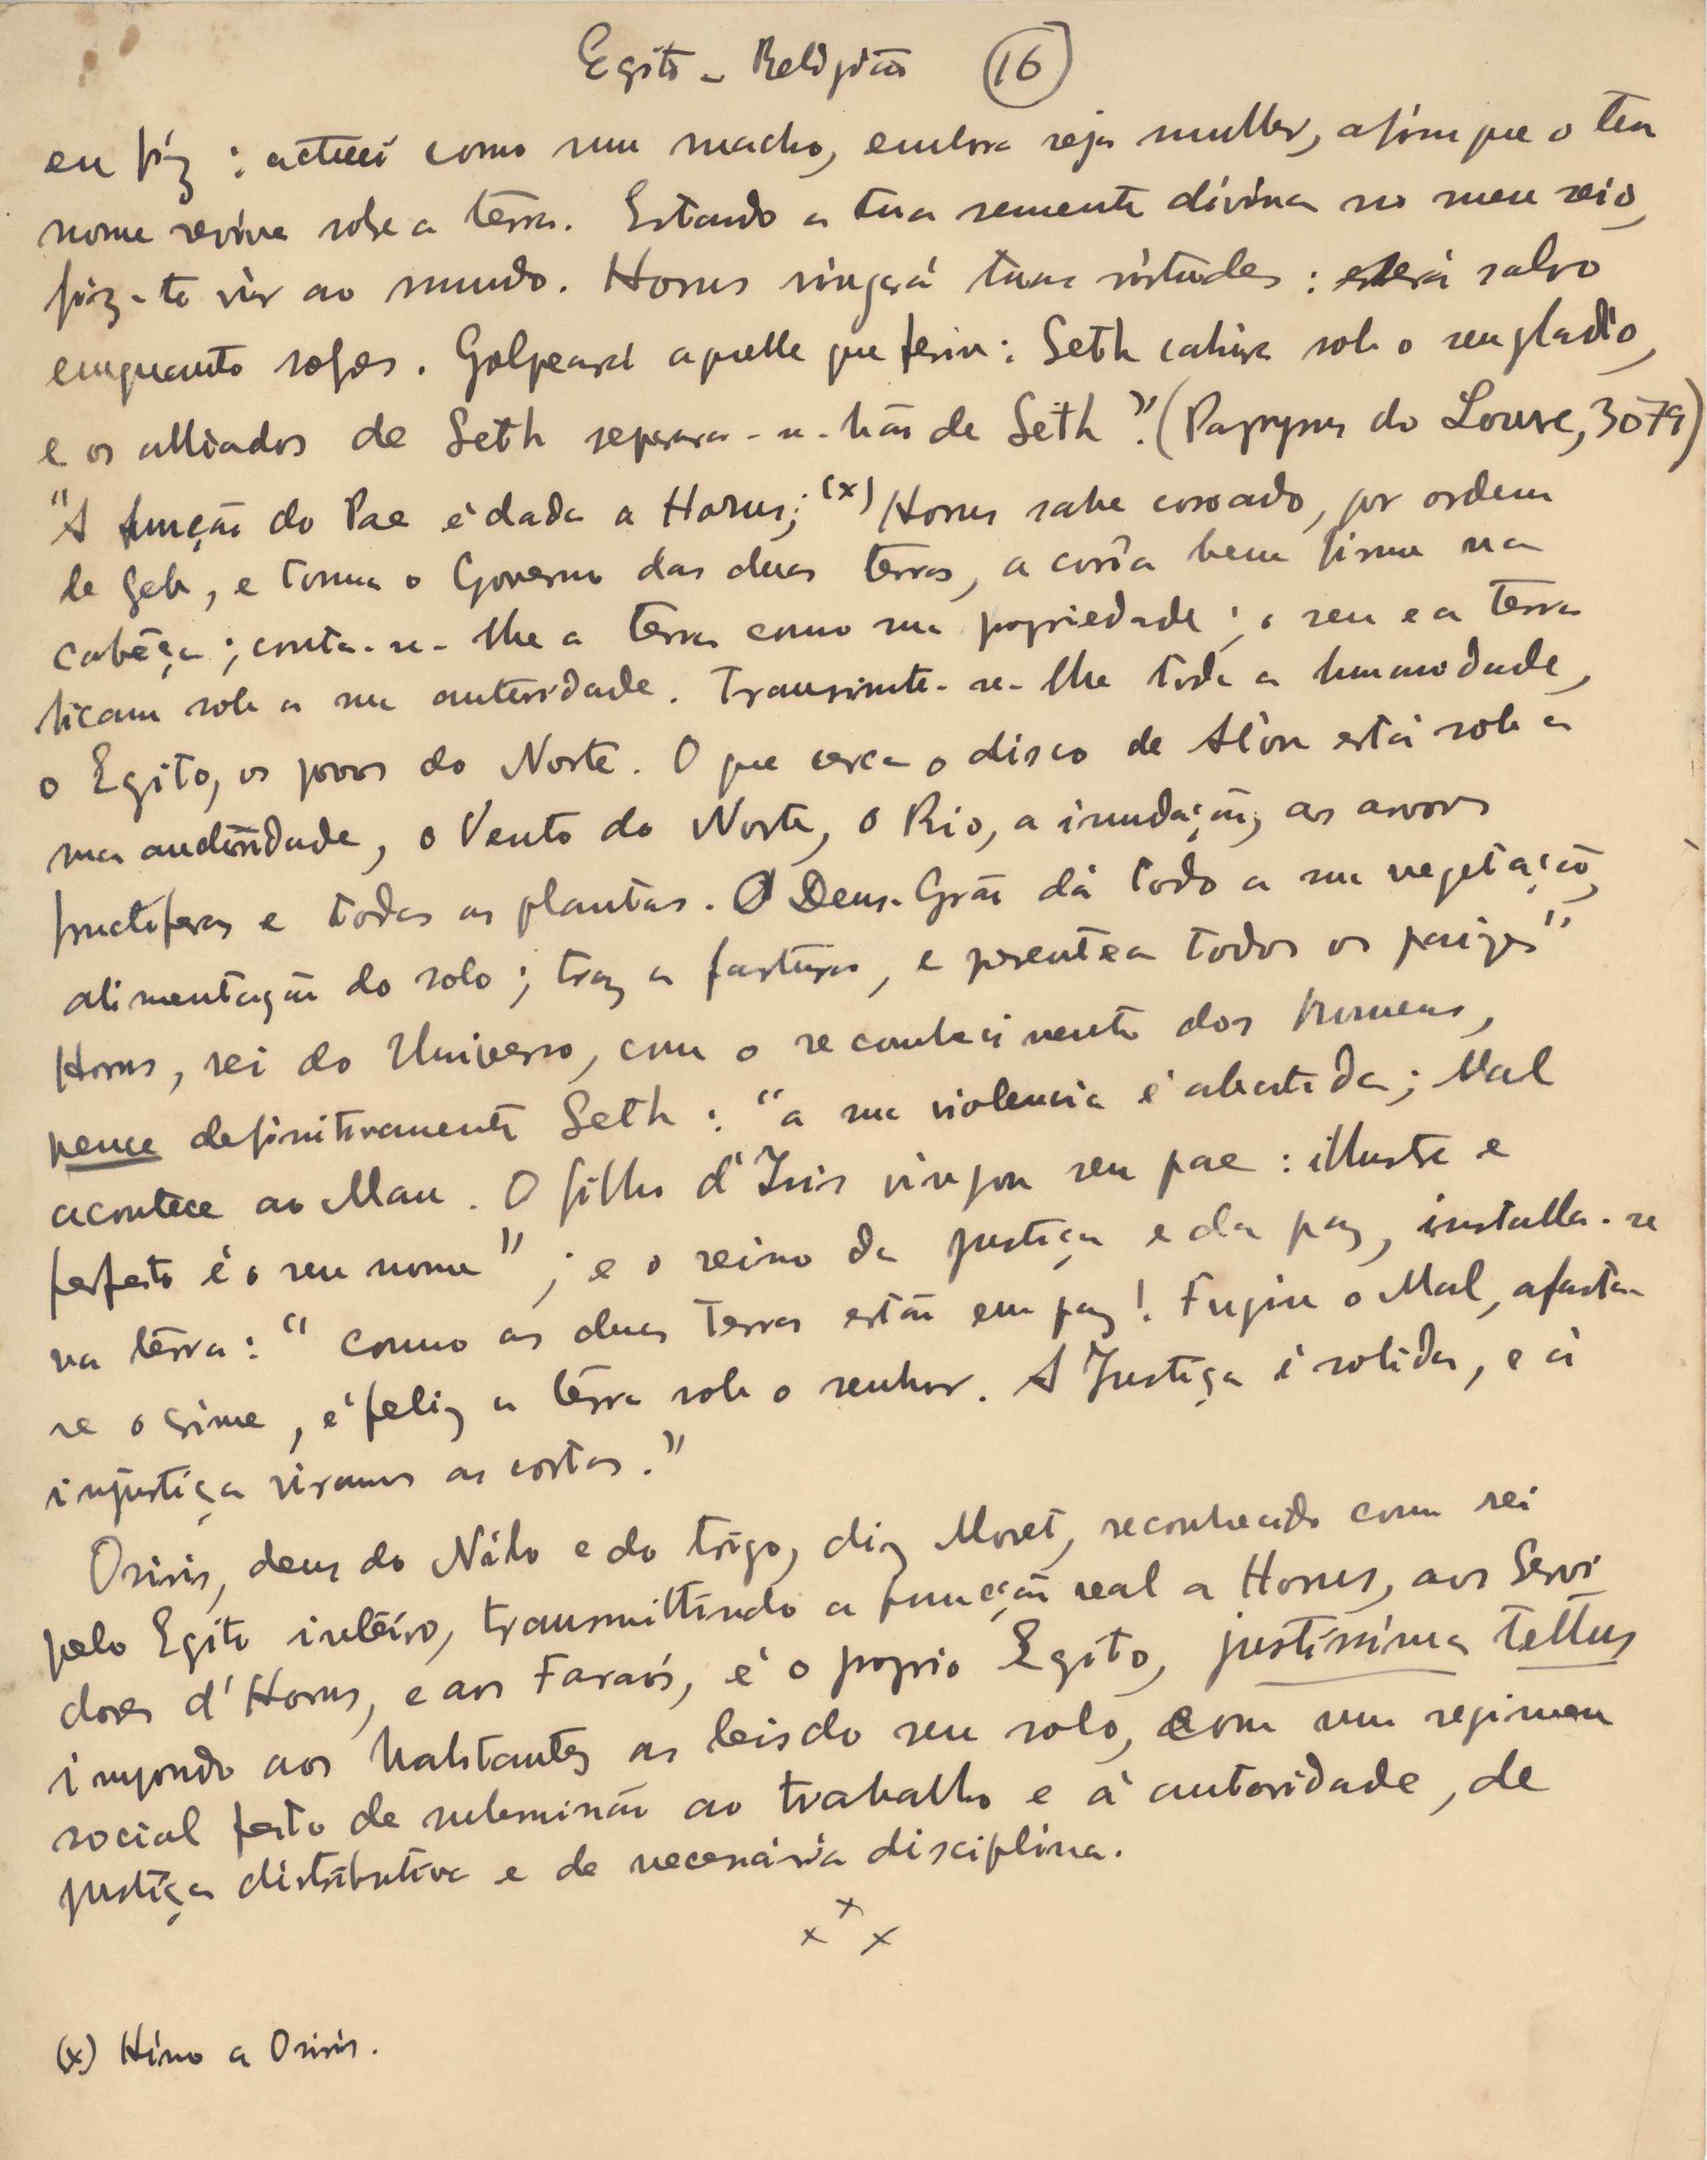 Egito - Religião (16)
eu fiz : actuei como um macho, embora seja mulher, afim que o teu
nome reviva sobre a terra. Estando a tua semente divina no meu seio,
fiz-te vir ao mundo. Horus vingará tuas virtudes : salvo
emquanto sofres. Golpeará aquelle que feriu : Seth cahirá sob o seu gladio,
e os alliados de Seth separar-se-hão de Seth". (Papyrus do Louvre, 3079)
"A função do Pae é dada a Horus; (x) Horus sahe coroado, por ordem
de Geb, e toma o Governo das duas terras, a corôa bem firme na
cabêça ; conta-se-lhe a terra como sua propriedade ; o seu e a terra
ficam sob a sua autoridade. Transmite-se-lhe toda a humanidade,
o Egito, os povos do Norte. O que cerca o disco de Aton está sob a
sua autoridade, o Vento do Norte, o Rio, a inundação, as arvores
fructiferas e todas as plantas. O Deus-Grão dá todo a sua vegetação,
alimentação do solo ; traz a fartura, e presentea todos os paizes"
Horus, rei do Universo, com o reconhecimento dos homens,
vence definitivamente Seth : "a sua violencia é abatida ; Mal
acontece ao Mau. O filho d'Isis vingou seu pae : illustre e
perfeito é o seu nome" ; e o reino da justiça e da paz, installa-se
na terra : "Como as duas terras estão em paz ! Fugiu o Mal, afasta-
se o crime, é feliz a terra sob o senhor. A Justiça é solida, e á
injustiça viramos as costas."
Osiris, deus do Nilo e do trigo, diz Moret, reconhecido como rei
pelo Egito inteiro, transmittindo a função real a Horus, aos Servi
dores d'Horus, e aos Faraós, é o proprio Egito, justissima tellus
impondo aos habitantes as leis do seu solo, com um regimen
social feito de submissão ao trabalho e á autoridade, de
justiça distributiva e de necessária disciplina.
x x x
(x) Hino a Osiris.